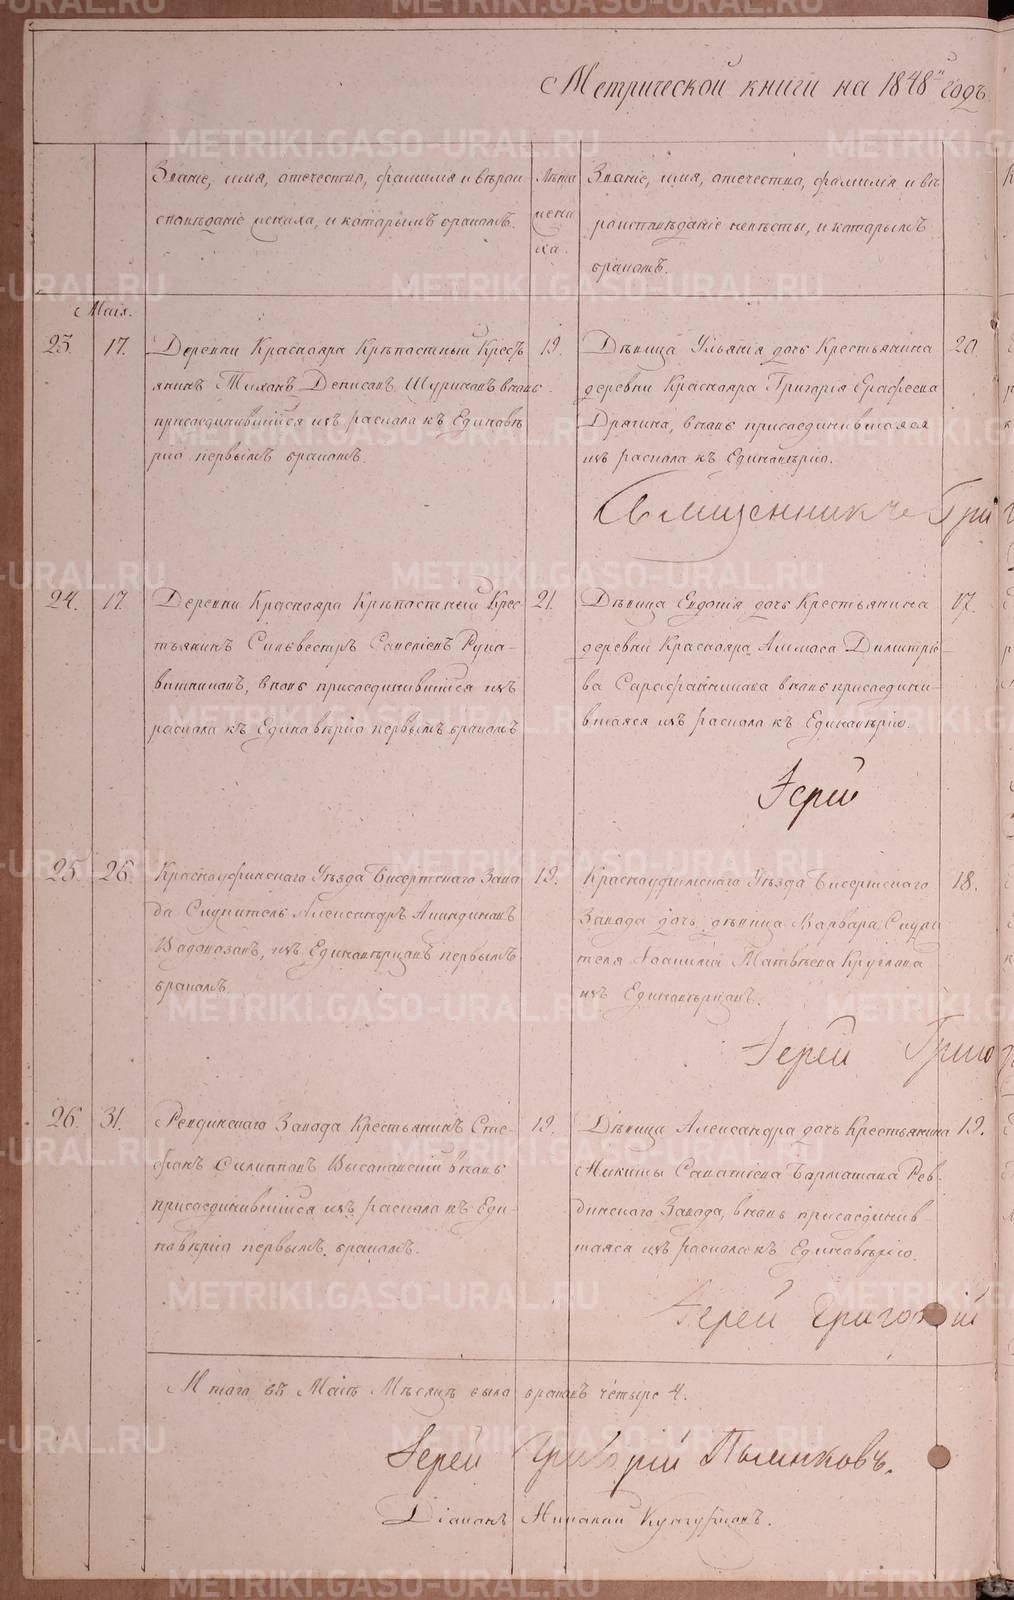 Метрической книги на 1848й годъ.
Званіе, имя, отечество, фамилія и вѣрои
споведаніе жениха, и которымъ бракомъ.
Лѣта
жени
ха.
Званіе, имя, отечество, фамилія и вѣ
роисповѣданіе невѣсты, и которымъ
бракомъ.
Маія.
23. 17. Деревни Краснояра Крѣпостный Кресть
янинъ Тихонъ Денисовъ вновь
присоединившійся изъ раскола къ Единовѣ
рію первымъ бракомъ.
19.
Дѣвица Ульянія дочь Крестьянина
деревни Краснояра Григорія Ерофеева
вновь присоединившаяся
изъ раскола къ Единовѣрію.
20.
Священникъ Гри
24. 17. Деревни Краснояра Крѣпостный Крес
тьянинъ Сильвестръ Савеліевъ Рука-
вишниковъ, вновь присоединившійся изъ
раскола къ Единовѣрію первымъ бракомъ
21.
Дѣвица Евдокія дочь Крестьянина
деревни Краснояра Димитріе-
ва Сарафанникова вновь присоедини-
вшаяся изъ раскола къ Единовѣрію.
17.
Іерей
25. 26. Красноуфимскаго Уѣзда Бисертскаго Заво
да Служитель Александръ
Водовозовъ, изъ Единовѣрцовъ первымъ
бракомъ.
19.
Красноуфимскаго Уѣзда Бисертскаго
Завода дочь дѣвица Варвара Служи
теля Матвѣева Круглова
изъ Единовѣрцовъ.
18.
Іерей Григо
26. 31. Ревдинскаго Завода Крестьянинъ Сте-
фанъ Филипповъ вновь
присоединившійся изъ раскола къ Еди-
новѣрію первымъ бракомъ.
19.
Дѣвица Александра дочь Крестьянина
Никиты Саватіева Барматова Рев-
динскаго Завода, вновь присоединив-
шаяся изъ раскола къ Единовѣрію.
19.
Іерей Григорій
Итого въ Маіѣ Мѣсяцѣ было браковъ четыре 4.
Іерей Григорій Пьянковъ.
Діаконъ Николай Кунгурцовъ.
METRIKI.GASO-URAL.RU